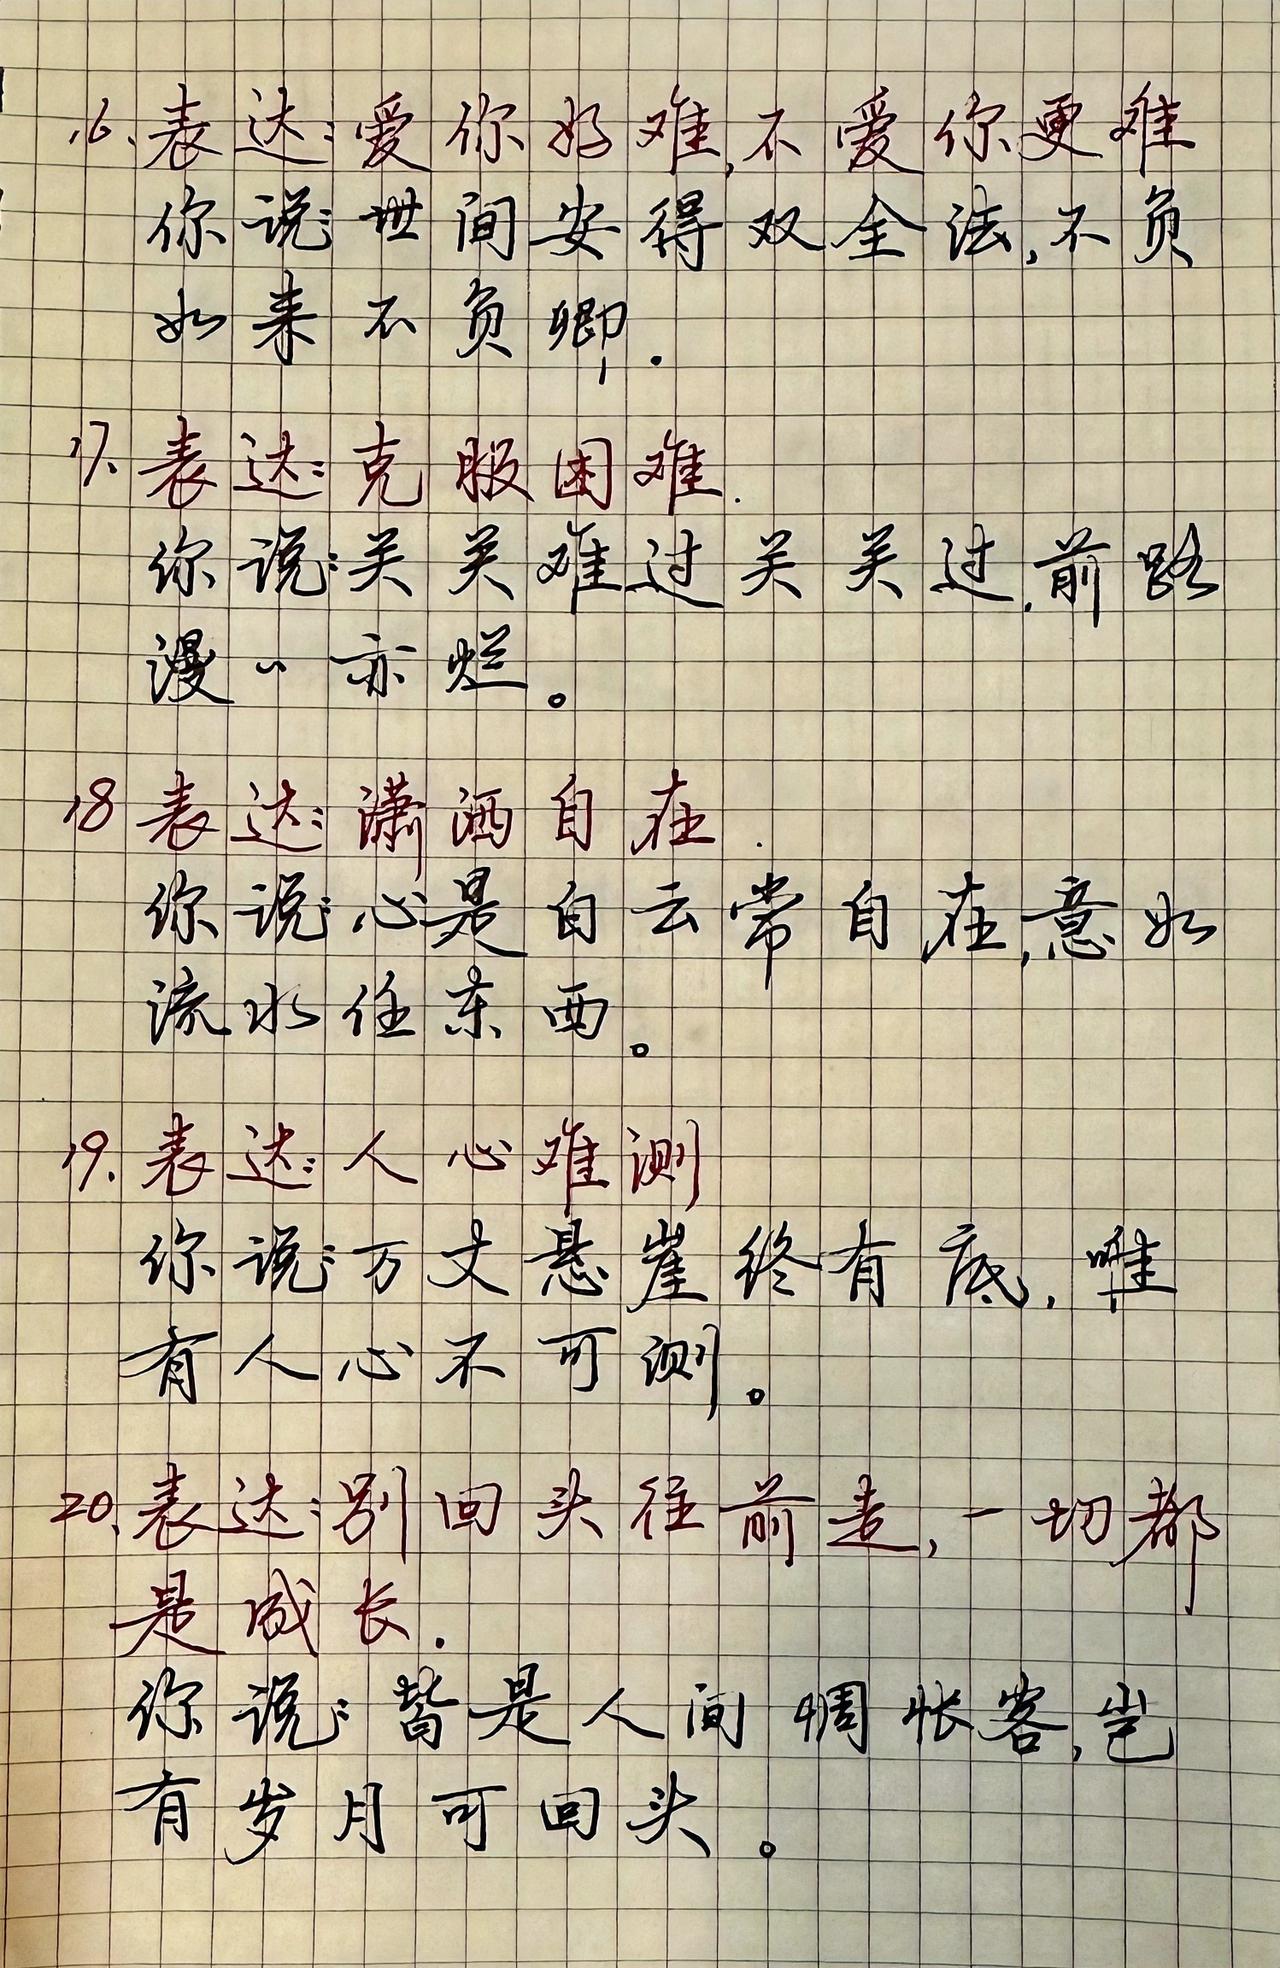 16、表达：爱你好难，不爱你更难
你说：世间安得双全法，不负
如来不负卿.
17、表达：克服困难.
你说：关关难过关关过，前路
漫〃亦烂。
18 表达：潇洒自在.
你说：心是白云常自在，意如
流水任东西。
19、表达：人心难测
你说：万丈悬崖终有底，唯
有人心不可测。
20、表达：别回头往前走，一切都
是成长.
你说：皆是人间惆怅客，岂
有岁月可回头。